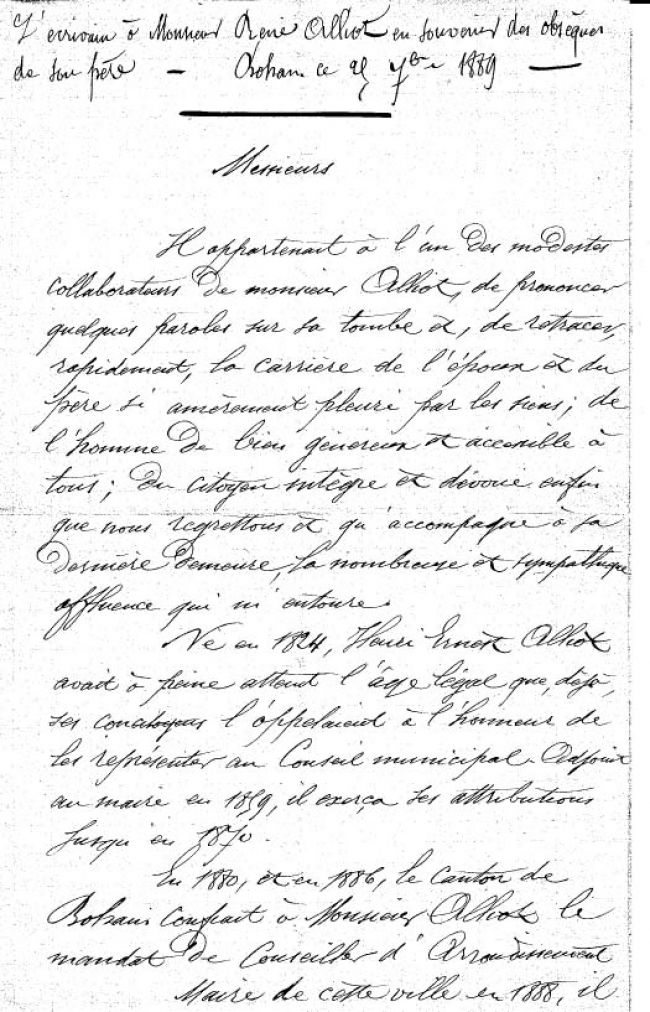 L'écrivain à Monsieur René Alliot en souvenir des obsèques
de son père - Bohain ce 25 7bre 1889 -
Messieurs
Il appartenait à l'un des modestes
collaborateurs de monsieur Alliot, de prononcer
quelques paroles sur sa tombe et, de retracer,
rapidement, la carrière de l'époux et du
père si amèrement pleuré par les siens; de
l'homme de bien généreux et accessible à
tous; du citoyen intègre et dévoué enfin
que nous regrettons et qu'accompagne à sa
dernière demeure, la nombreuse et sympathique
affluence qui m'entoure.
Né en 1824, Henri Ernest Alliot
avait à peine atteint l'âge légal que, déjà,
ses concitoyens l'appelaient à l'honneur de
les représenter au Conseil municipal. Adjoint
au maire en 1859, il exerça ses attributions
jusqu'en 1870.
En 1880, et en 1886, le canton de
Bohain confiait à Monsieur Alliot le
mandat de Conseiller d'Arrondissement
Maire de cette ville en 1888, il